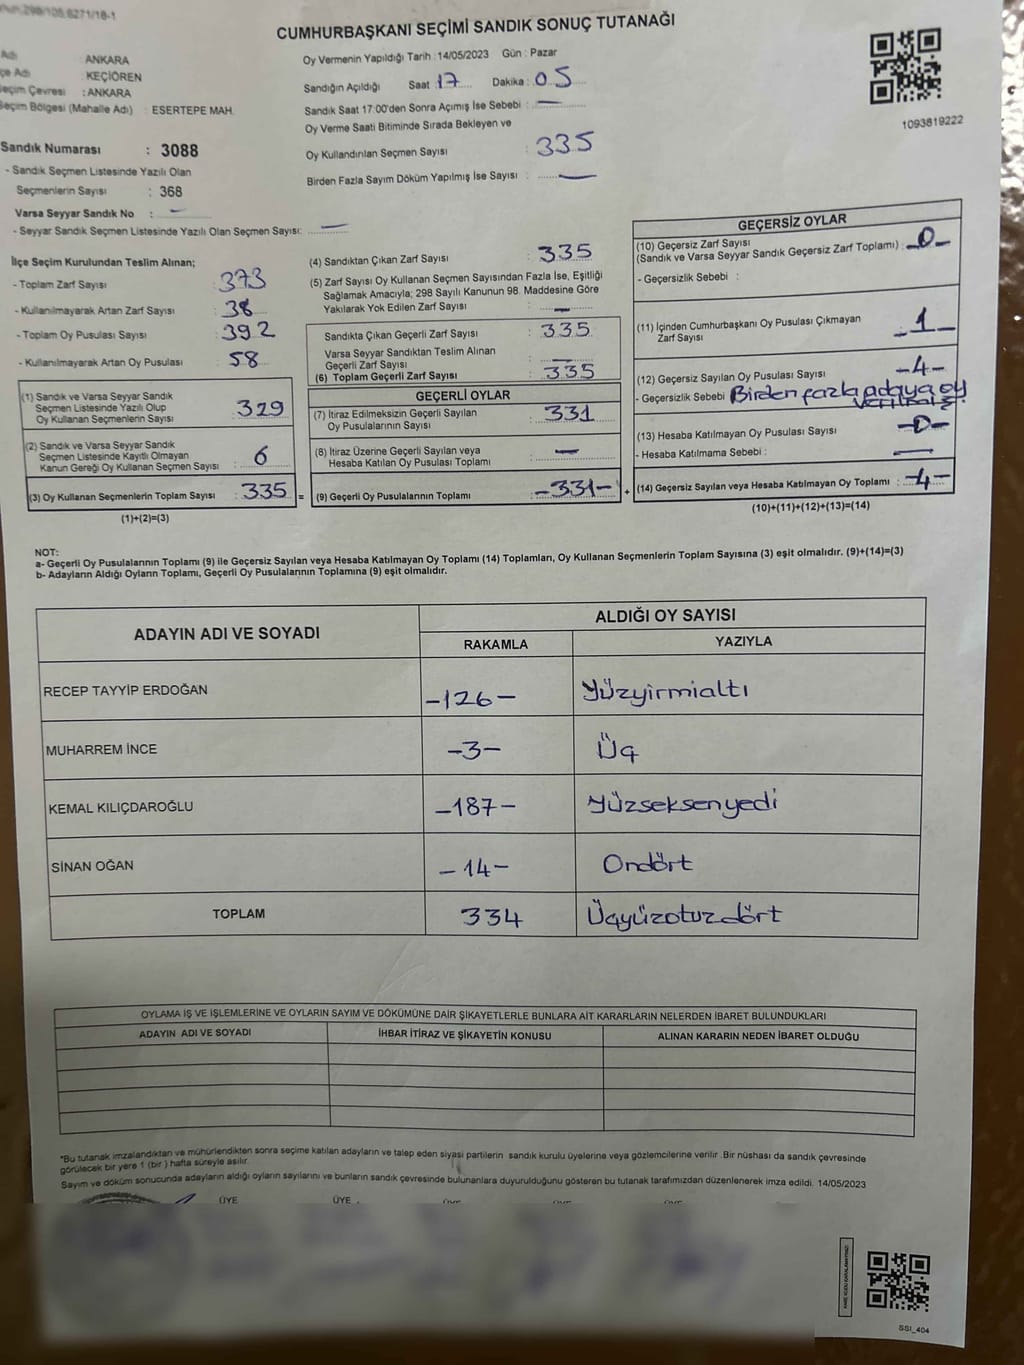 CUMHURBAŞKANI SEÇİMİ SANDIK SONUÇ TUTANAĞI
: ANKARA
: KEÇİÖREN
Seçim Çevresi : ANKARA
Seçim Bölgesi (Mahalle Adı) : ESERTEPE MAH.
Sandık Numarası : 3088
- Sandık Seçmen Listesinde Yazılı Olan
Seçmenlerin Sayısı : 368
Varsa Seyyar Sandık No : —
- Seyyar Sandık Seçmen Listesinde Yazılı Olan Seçmen Sayısı: —
Oy Vermenin Yapıldığı Tarih : 14/05/2023 Gün : Pazar
Sandığın Açıldığı Saat 17 Dakika : 05
Sandık Saat 17:00'den Sonra Açımış İse Sebebi : —
Oy Verme Saati Bitiminde Sırada Bekleyen ve
Oy Kullandırılan Seçmen Sayısı : 335
Birden Fazla Sayım Döküm Yapılmış İse Sayısı : —
1093819222
İlçe Seçim Kurulundan Teslim Alınan;
- Toplam Zarf Sayısı : 373
- Kullanılmayarak Artan Zarf Sayısı : 38
- Toplam Oy Pusulası Sayısı : 392
- Kullanılmayarak Artan Oy Pusulası : 58
(1) Sandık ve Varsa Seyyar Sandık
Seçmen Listesinde Yazılı Olup
Oy Kullanan Seçmenlerin Sayısı : 329
(2) Sandık ve Varsa Seyyar Sandık
Seçmen Listesinde Kayıtlı Olmayan
Kanun Gereği Oy Kullanan Seçmen Sayısı : 6
(3) Oy Kullanan Seçmenlerin Toplam Sayısı : 335
(1)+(2)=(3)
(4) Sandıktan Çıkan Zarf Sayısı : 335
(5) Zarf Sayısı Oy Kullanan Seçmen Sayısından Fazla İse, Eşitliği
Sağlamak Amacıyla; 298 Sayılı Kanunun 98. Maddesine Göre
Yakılarak Yok Edilen Zarf Sayısı : —
Sandıkta Çıkan Geçerli Zarf Sayısı : 335
Varsa Seyyar Sandıktan Teslim Alınan
Geçerli Zarf Sayısı : —
(6) Toplam Geçerli Zarf Sayısı : 335
GEÇERLİ OYLAR
(7) İtiraz Edilmeksizin Geçerli Sayılan
Oy Pusulalarının Sayısı : 331
(8) İtiraz Üzerine Geçerli Sayılan veya
Hesaba Katılan Oy Pusulası Toplamı : —
= (9) Geçerli Oy Pusulalarının Toplamı : -331-
GEÇERSİZ OYLAR
(10) Geçersiz Zarf Sayısı
(Sandık ve Varsa Seyyar Sandık Geçersiz Zarf Toplamı) : -0-
- Geçersizlik Sebebi :
(11) İçinden Cumhurbaşkanı Oy Pusulası Çıkmayan
Zarf Sayısı : -1-
(12) Geçersiz Sayılan Oy Pusulası Sayısı : -4-
- Geçersizlik Sebebi : Birden fazla adaya oy
verilmiş.
(13) Hesaba Katılmayan Oy Pusulası Sayısı : -0-
- Hesaba Katılmama Sebebi : —
+ (14) Geçersiz Sayılan veya Hesaba Katılmayan Oy Toplamı : -4-
(10)+(11)+(12)+(13)=(14)
NOT:
a- Geçerli Oy Pusulalarının Toplamı (9) ile Geçersiz Sayılan veya Hesaba Katılmayan Oy Toplamı (14) Toplamları, Oy Kullanan Seçmenlerin Toplam Sayısına (3) eşit olmalıdır. (9)+(14)=(3)
b- Adayların Aldığı Oyların Toplamı, Geçerli Oy Pusulalarının Toplamına (9) eşit olmalıdır.
ADAYIN ADI VE SOYADI ALDIĞI OY SAYISI
RAKAMLA YAZIYLA
RECEP TAYYİP ERDOĞAN -126- Yüzyirmialtı
MUHARREM İNCE -3- Üç
KEMAL KILIÇDAROĞLU -187- Yüzseksenyedi
SİNAN OĞAN -14- Ondört
TOPLAM 334 Üçyüzotuzdört
OYLAMA İŞ VE İŞLEMLERİNE VE OYLARIN SAYIM VE DÖKÜMÜNE DAİR ŞİKAYETLERLE BUNLARA AİT KARARLARIN NELERDEN İBARET BULUNDUKLARI
ADAYIN ADI VE SOYADI İHBAR İTİRAZ VE ŞİKAYETİN KONUSU ALINAN KARARIN NEDEN İBARET OLDUĞU
*Bu tutanak imzalandıktan ve mühürlendikten sonra seçime katılan adayların ve talep eden siyasi partilerin sandık kurulu üyelerine veya gözlemcilerine verilir .Bir nüshası da sandık çevresinde
görülecek bir yere 1 (bir ) hafta süreyle asılır.
Sayım ve döküm sonucunda adayların aldığı oyların sayılarını ve bunların sandık çevresinde bulunanlara duyurulduğunu gösteren bu tutanak tarafımızdan düzenlenerek imza edildi. 14/05/2023
ÜYE ÜYE
SSI_404